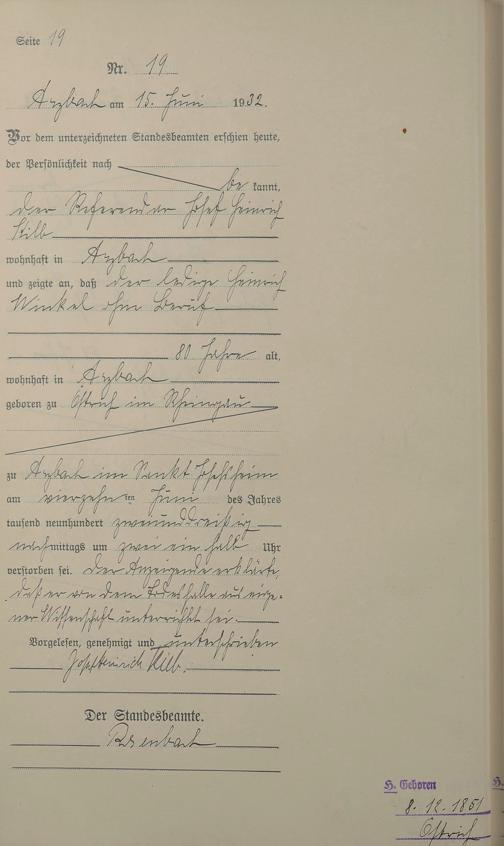 Seite 19
Nr. 19
Arzbach am 15. Juni 1932.
Vor dem unterzeichneten Standesbeamten erschien heute,
der Persönlichkeit nach
be kannt,
der Referendar Josef Heinrich
Kilb
wohnhaft in Arzbach
und zeigte an, daß der ledige Heinrich
Winkel ohne Beruf
80 Jahre alt,
wohnhaft in Arzbach
geboren zu Östrich im Rheingau
zu Arzbach im Sankt Josefsheim
am vierzehnten Juni des Jahres
tausend neunhundert zweiunddreißig
nachmittags um zwei ein halb Uhr
verstorben sei. Der Anzeigende erklärte,
daß er von dem Todesfalle aus eige-
ner Wissenschaft unterrichtet sei.
Vorgelesen, genehmigt und unterschrieben
Josef Heinrich Kilb.
Der Standesbeamte.
H. Geboren
8. 12. 1851
Östrich